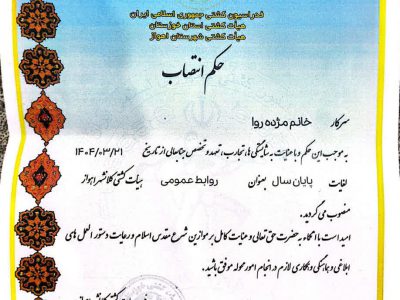 فدراسیون کشتی جمهوری اسلامی ایران
هیأت کشتی استان خوزستان
هیأت کشتی شهرستان اهواز
حکم انتصاب
سرکار خانم مژده روا
به موجب این حکم و با عنایت به شایستگی ها، تجارب، تعهد و تخصص جنابعالی از تاریخ ۱۴۰۴/۰۳/۲۱
لغایت پایان سال بعنوان روابط عمومی هیأت کشتی کلانشهر اهواز
منصوب می گردید.
امید است با اتکاء به حضرت حق تعالی و عنایت کامل بر موازین شرع مقدس اسلام و رعایت دستور العمل های
ابلاغی و هماهنگی و همکاری لازم در انجام امور محوله موفق باشید.